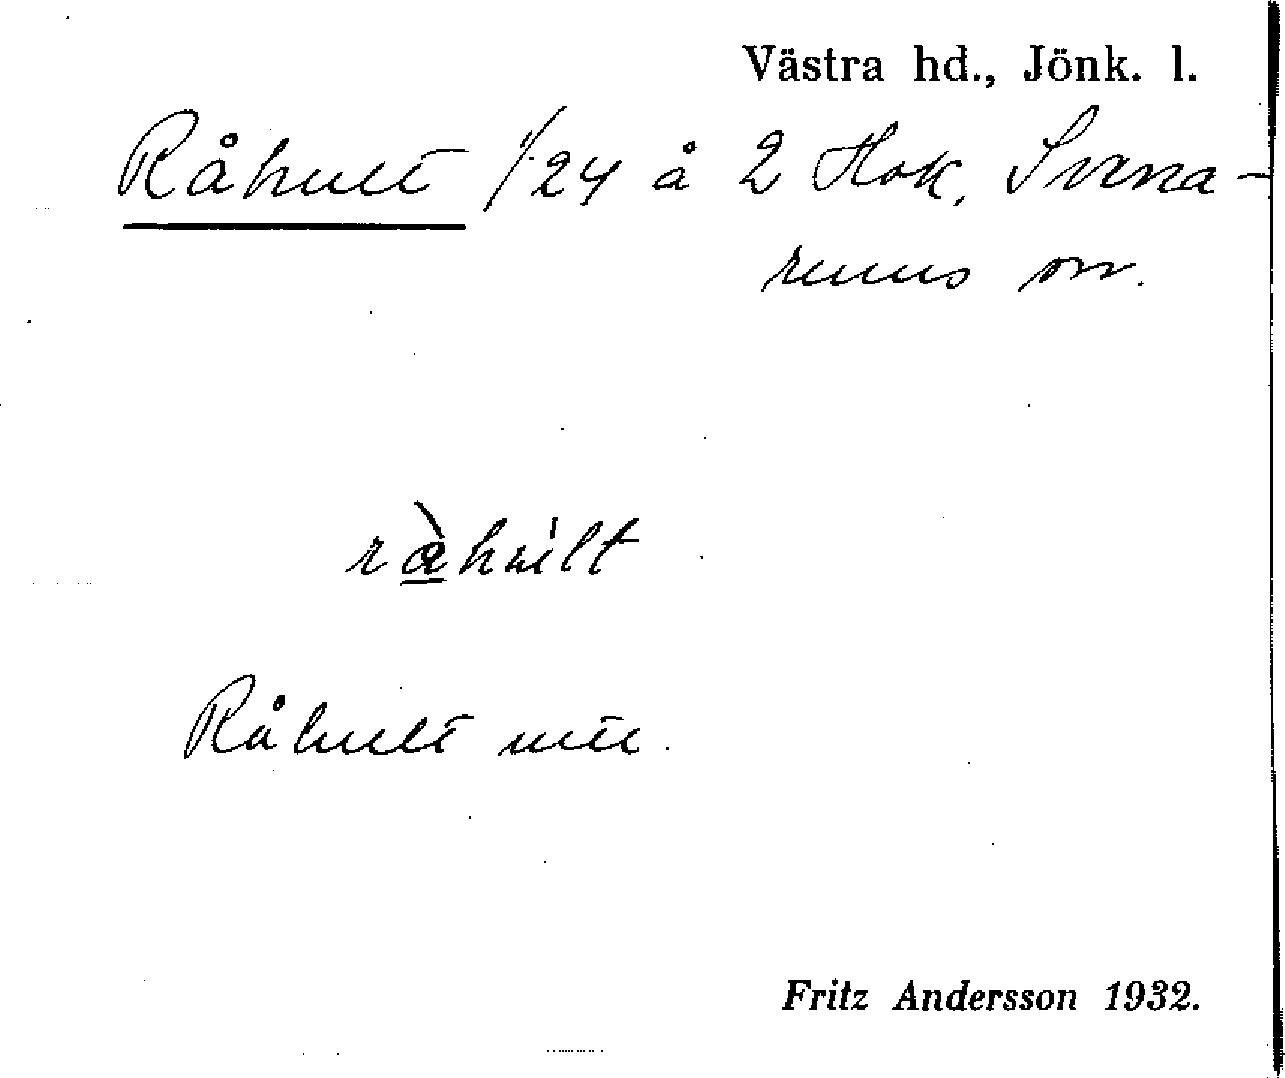 Västra hd., Jönk. l.
Råhult 1/24 å 2 Hok, Svena-
rums sn.
råhult
Råhult
Fritz Andersson 1932.